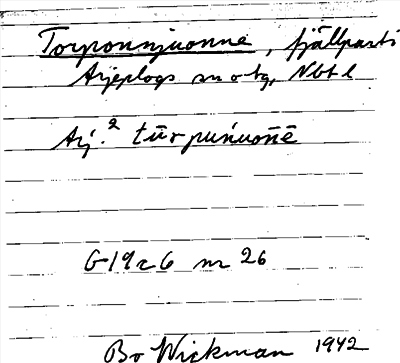 Torponnjuonne, fjällparti
Arjeplogs sn o tg, Nbt l
Arj.² tūrpuńuońē
G 19 a 6 nr 26
Bo Wickman 1942